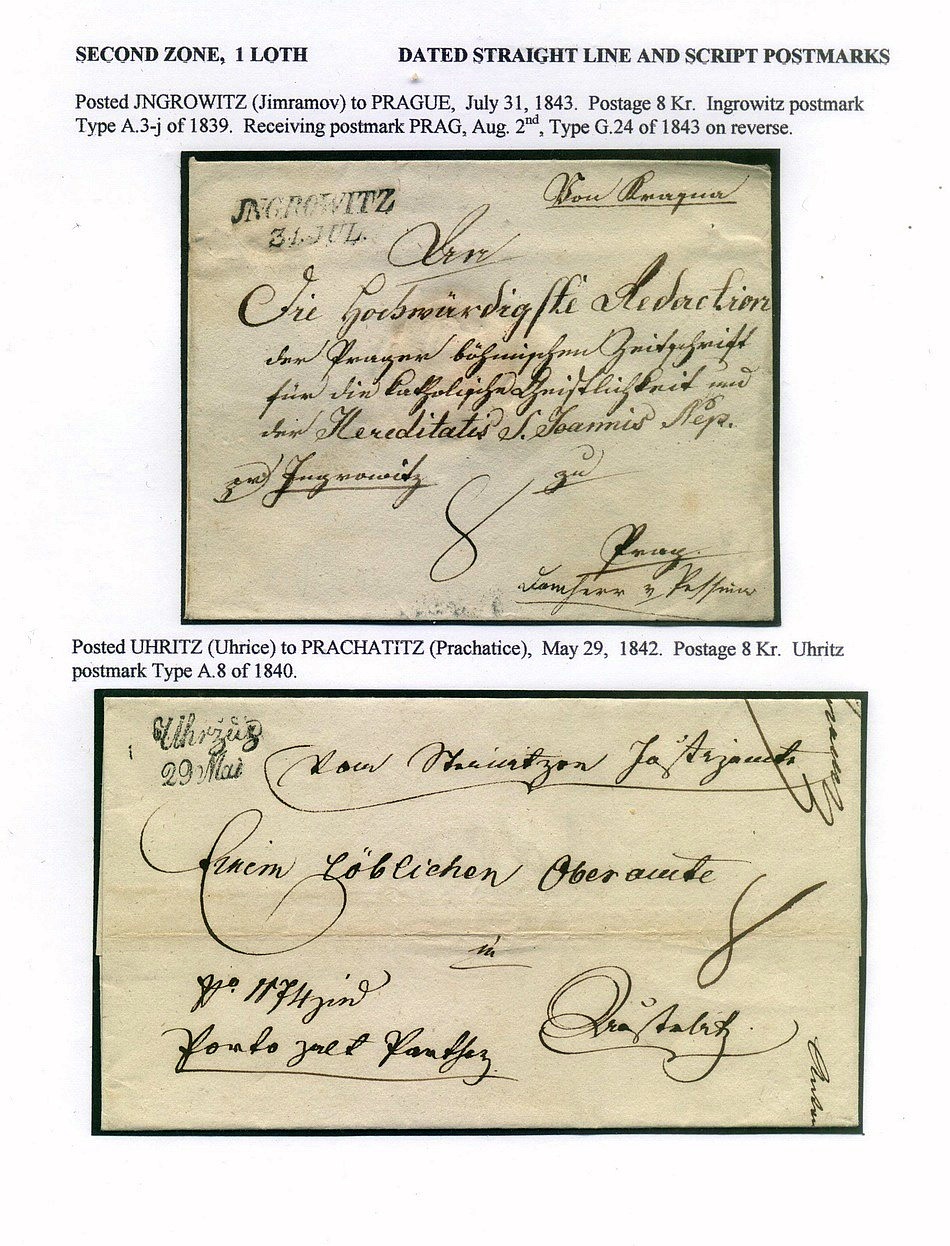 SECOND ZONE, 1 LOTH DATED STRAIGHT LINE AND SCRIPT POSTMARKS
Posted JNGROWITZ (Jimramov) to PRAGUE, July 31, 1843. Postage 8 Kr. Ingrowitz postmark
Type A.3-j of 1839. Receiving postmark PRAG, Aug. 2nd, Type G.24 of 1843 on reverse.
Von
JNGROWITZ
31. JUL.
An
Die Hochwürdigste Redaction
der Prager böhmischen Zeitschrift
für die katholische Geistlichkeit und
der Hereditatis S. Joannis Nep.
Ingrowitz zu
8
Prag
Domherr v Pessina
Posted UHRITZ (Uhrice) to PRACHATiTZ (Prachatice), May 29, 1842. Postage 8 Kr. Uhritz
postmark Type A.8 of 1840.
29 Mai
Vom Justizamte
Einem Löblichen Oberamte
8
in
No 1174
Porto